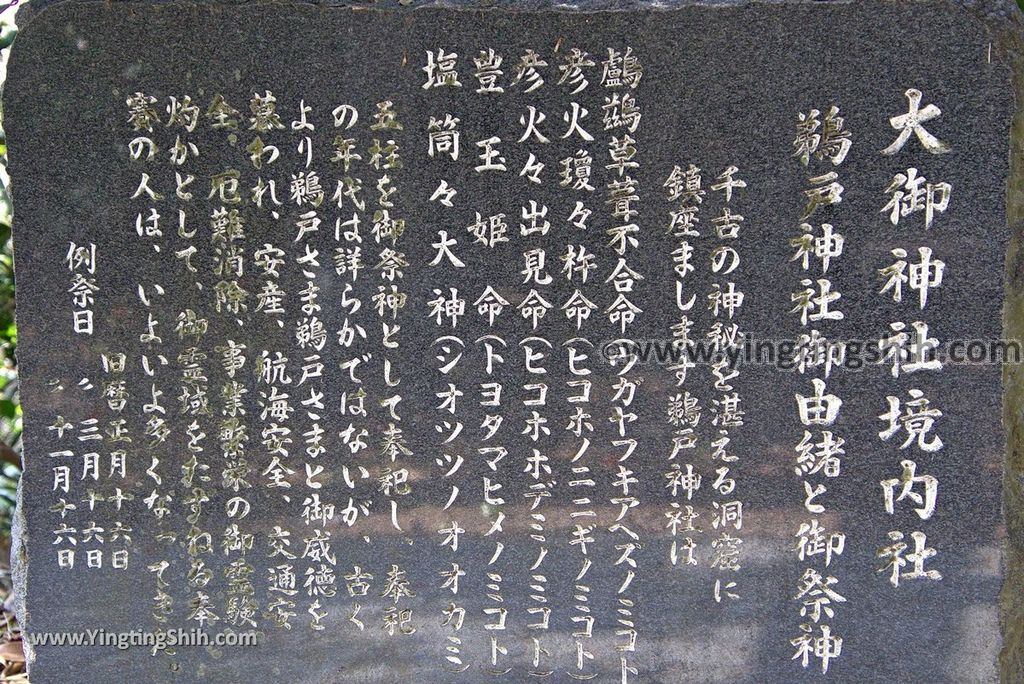 大御神社境内社
鵜戸神社御由緒と御祭神
千古の神秘を湛える洞窟に
鎮座まします鵜戸神社は
鸕鷀草葺不合命(ウガヤフキアヘズノミコト
彦火瓊々杵命(ヒコホノニニギノミコト)
彦火々出見命(ヒコホホデミノミコト)
豊玉姫命(トヨタマヒメノミコト)
塩筒々大神(シオツツノオオカミ)
五柱を御祭神として奉祀し、奉祀
の年代は詳らかではないが、古く
より鵜戸さま鵜戸さまと御威徳を
慕われ、安産、航海安全、交通安
全、厄難消除、事業繁栄の御霊験
灼かとして、御霊域をたずねる奉
賽の人は、いよいよ多くなってきた。
例祭日
旧暦正月十六日
〃三月十六日
〃十一月十六日
©www.YingtingShih.com
www.YingtingShih.com